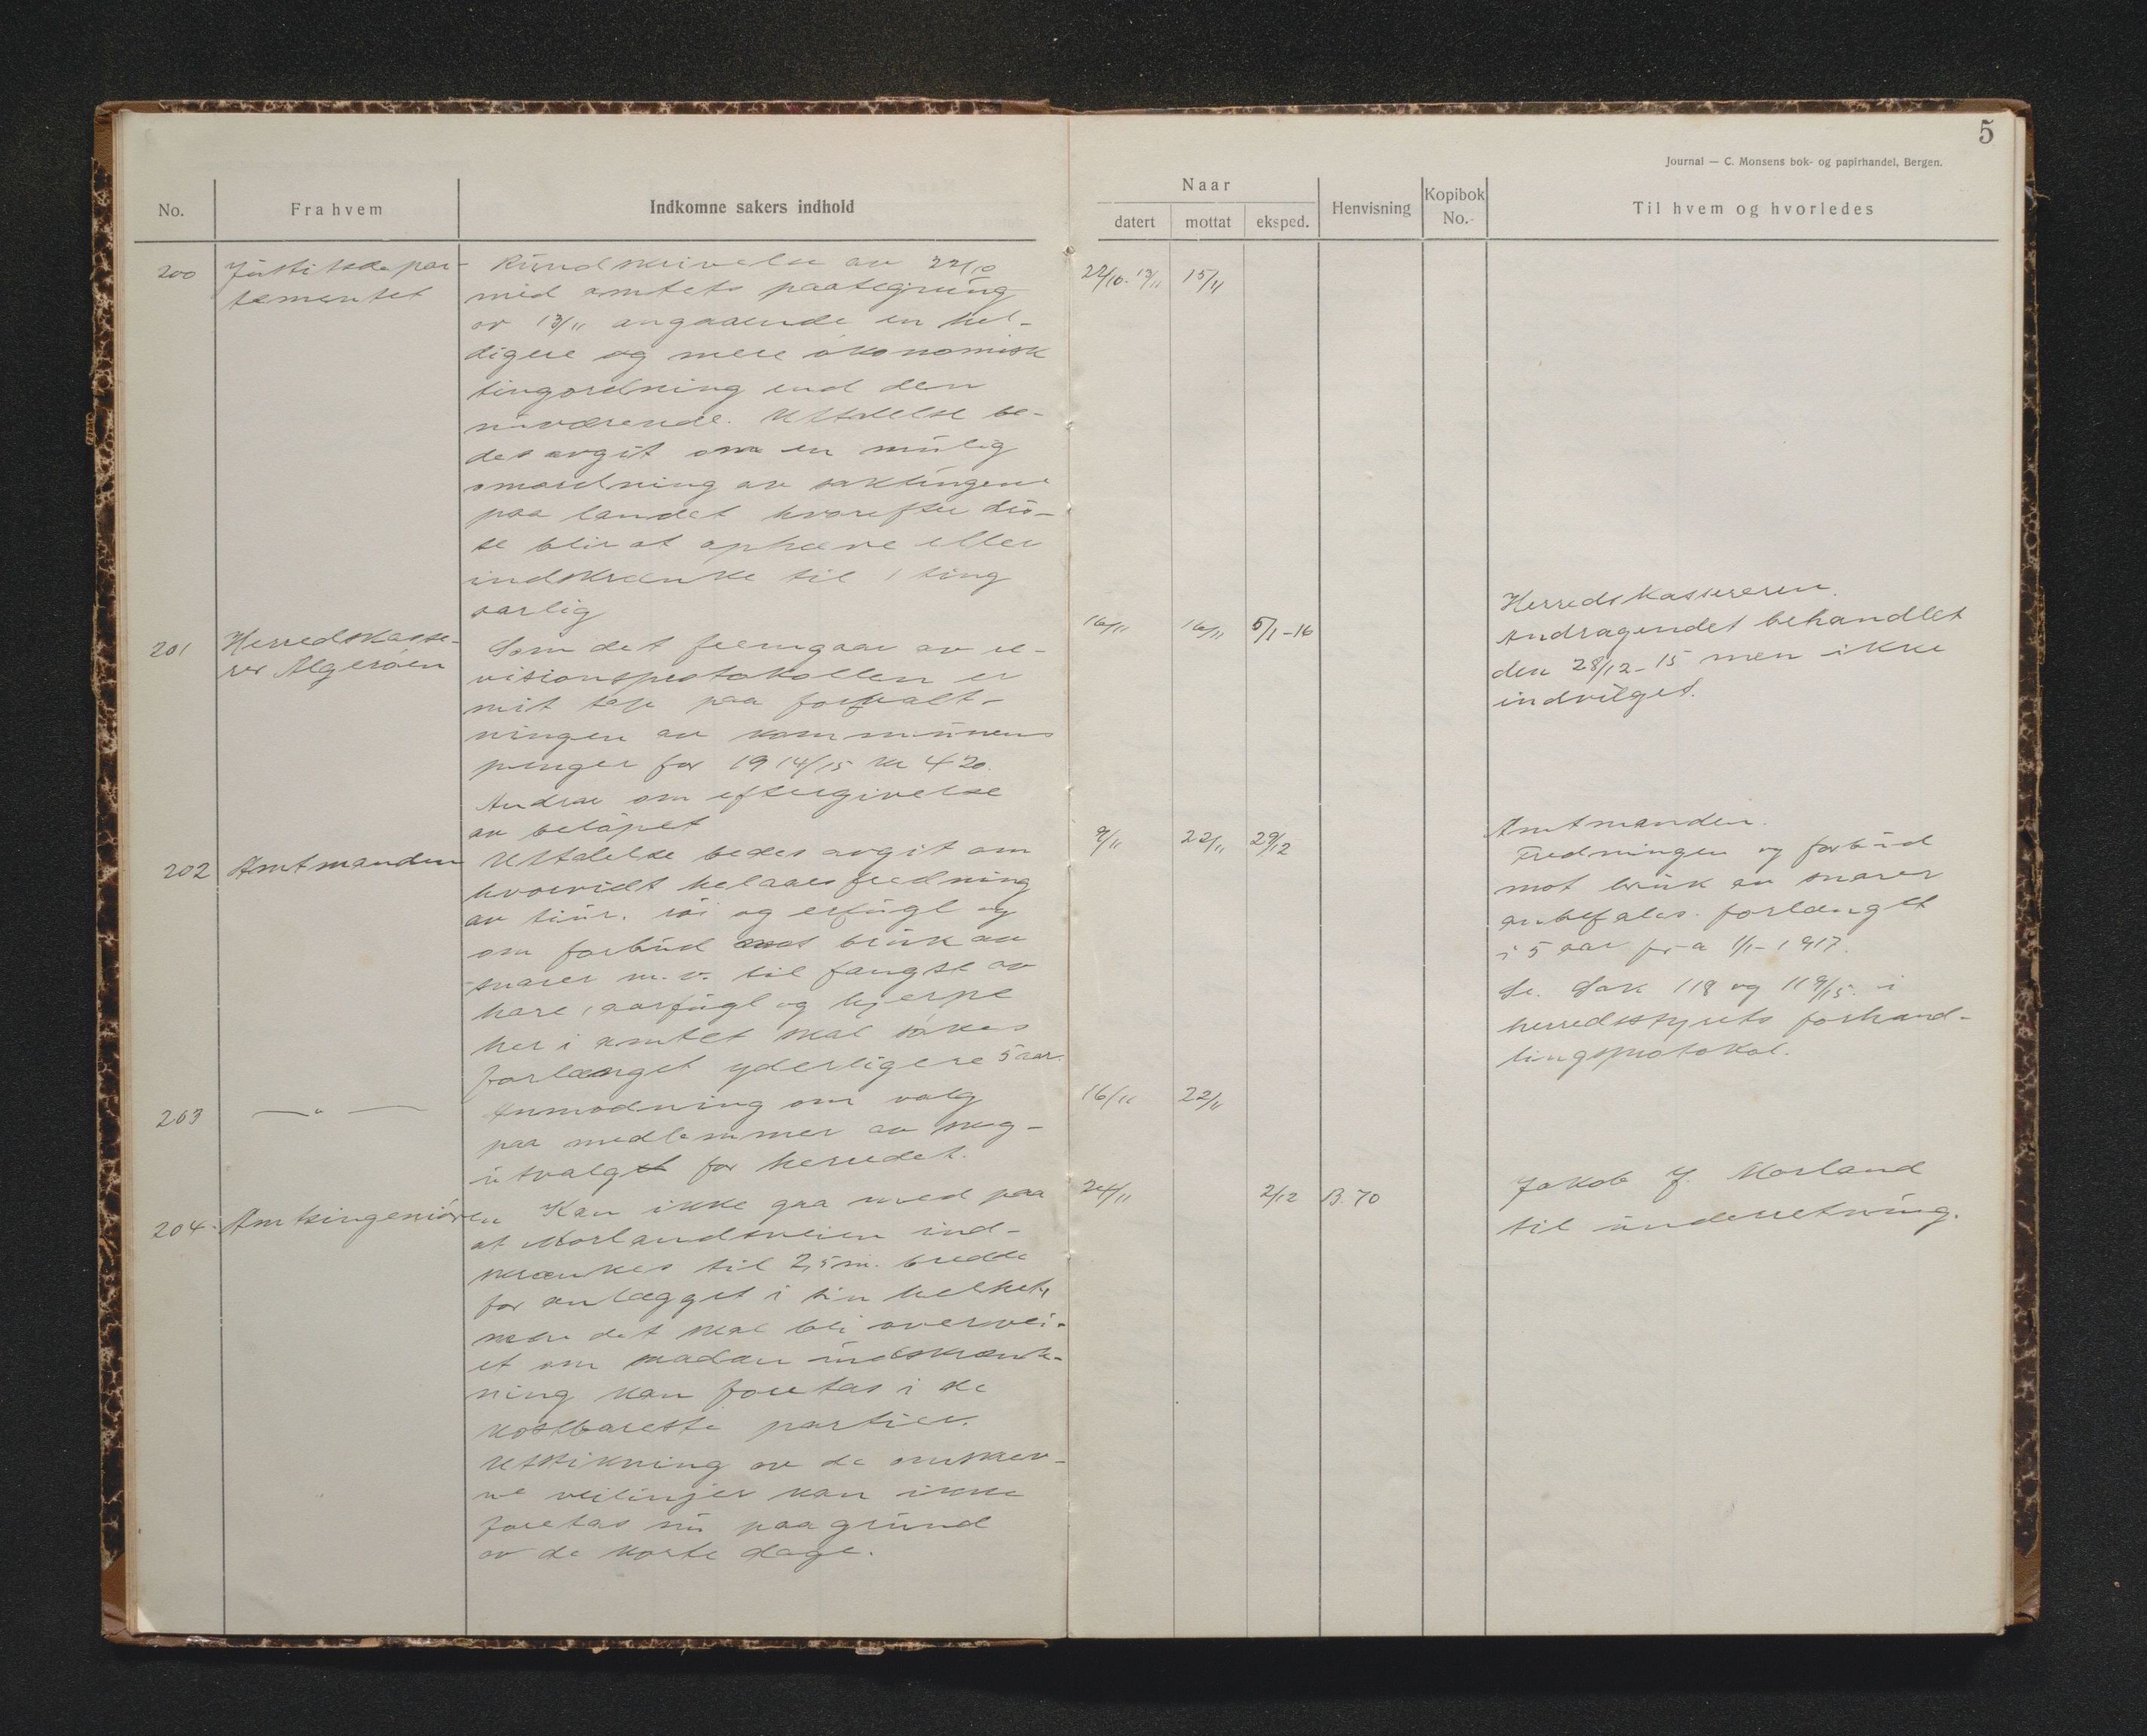 5
Journal — C. Monsens bok- og papirhandel, Bergen.
No.
Fra hvem
Indkomne sakers indhold
Naar
datert
mottat
eksped.
Henvisning
Kopibok
No.-
Til hvem og hvorledes
200
Justitsdepar-
tementet
Rundskrivelse av 22/10
med amtets paategning
av 13/11 angaaende en hel-
digere og mere økonomisk
tingordning end den
nuværende. Uttalelse be-
des avgit om en mulig
omordning av saktingene
paa landet hvorefter dis-
se blir at ophæve eller
indskrænke til 1 ting
aarlig
22/10-13/11
15/11
201
Herredskasse-
rer Algerøen
Som det fremgaar av re-
visionsprotokollen er
mit tap paa forvalt-
ningen av kommunens
penger for 1914/15 kr 420.
Andrar om eftergivelse
av beløpet
16/11
16/11
5/1-16
Herredskassereren.
Andragendet behandlet
den 28/12-15 men ikke
indvilget.
202
Amtmanden
Uttalelse bedes avgit om
hvorvidt helaarsfredning
av tiur, røi og erfugl og
om forbud mot bruk av
snarer m.v. til fangst av
hare, aarfugl og hjerpe
her i amtet skal søkes
forlænget yderligere 5 aar.
9/11
22/11
29/12
Amtmanden.
Fredningen og forbud
mot bruk av snarer
anbefales forlænget
i 5 aar fra 1/1-1917.
Se. Sak 118 og 119/15 i
herredsstyrets forhand-
lingsprotokol.
203
— " —
Anmodning om valg
paa medlemmer av skog-
utvalg for herredet.
16/11
22/11
204.
Amtsingeniøren
Kan ikke gaa med paa
at Morlandsveien ind-
skrænkes til 2,5 m. bredde
for anlægget i sin helhet,
men det skal bli overvei-
et om saadan indskrænk-
ning kan foretas i de
kostbareste partier.
Utstikning av de omskrev-
ne veilinjer kan ikke
foretas nu paa grund
av de korte dage.
24/11
2/12
B. 70
Jakob J. Morland
til underretning.